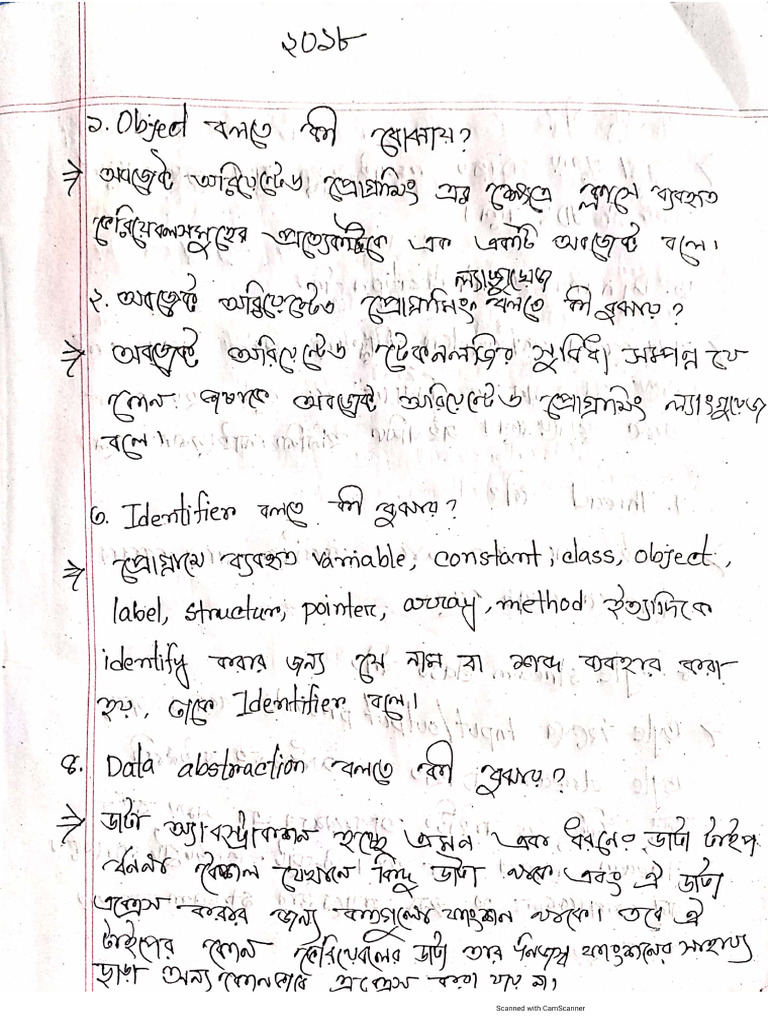 ২০১৮
১. Object বলতে কী বোঝায়?
⇒ অবজেক্ট অরিয়েন্টেড প্রোগ্রামিং এর ক্ষেত্রে ক্লাসে ব্যবহৃত
ভেরিয়েবলসমূহের প্রত্যেকটিকে এক একটি অবজেক্ট বলে।
ল্যাঙ্গুয়েজ
২. অবজেক্ট অরিয়েন্টেড প্রোগ্রামিং বলতে কী বুঝায়?
⇒ অবজেক্ট অরিয়েন্টেড টেকনলজির সুবিধা সম্পন্ন যে
কোন ভাষাকে অবজেক্ট অরিয়েন্টেড প্রোগ্রামিং ল্যাংগুয়েজ
বলে।
৩. Identifier বলতে কী বুঝায়?
⇒ প্রোগ্রামে ব্যবহৃত variable, constant, class, object,
label, structur, pointer, array, method ইত্যাদিকে
identify করার জন্য যে নাম বা শব্দ ব্যবহার করা
হয়, তাকে Identifier বলে।
৪. Data abstraction বলতে কী বুঝায়?
⇒ ডাটা অ্যাবস্ট্রাকশন হচ্ছে এমন এক ধরনের ডাটা টাইপ
বর্ননা কৌশল যেখানে কিছু ডাটা থাকে এবং ঐ ডাটা
এক্সেস করার জন্য কতগুলো ফাংশন থাকে। তবে ঐ
টাইপের কোন ভেরিয়েবলের ডাটা তার নিজস্ব ফাংশনের সাহায্য
ছাড়া অন্য কোনভাবে এক্সেস করা যায় না।
Scanned with CamScanner